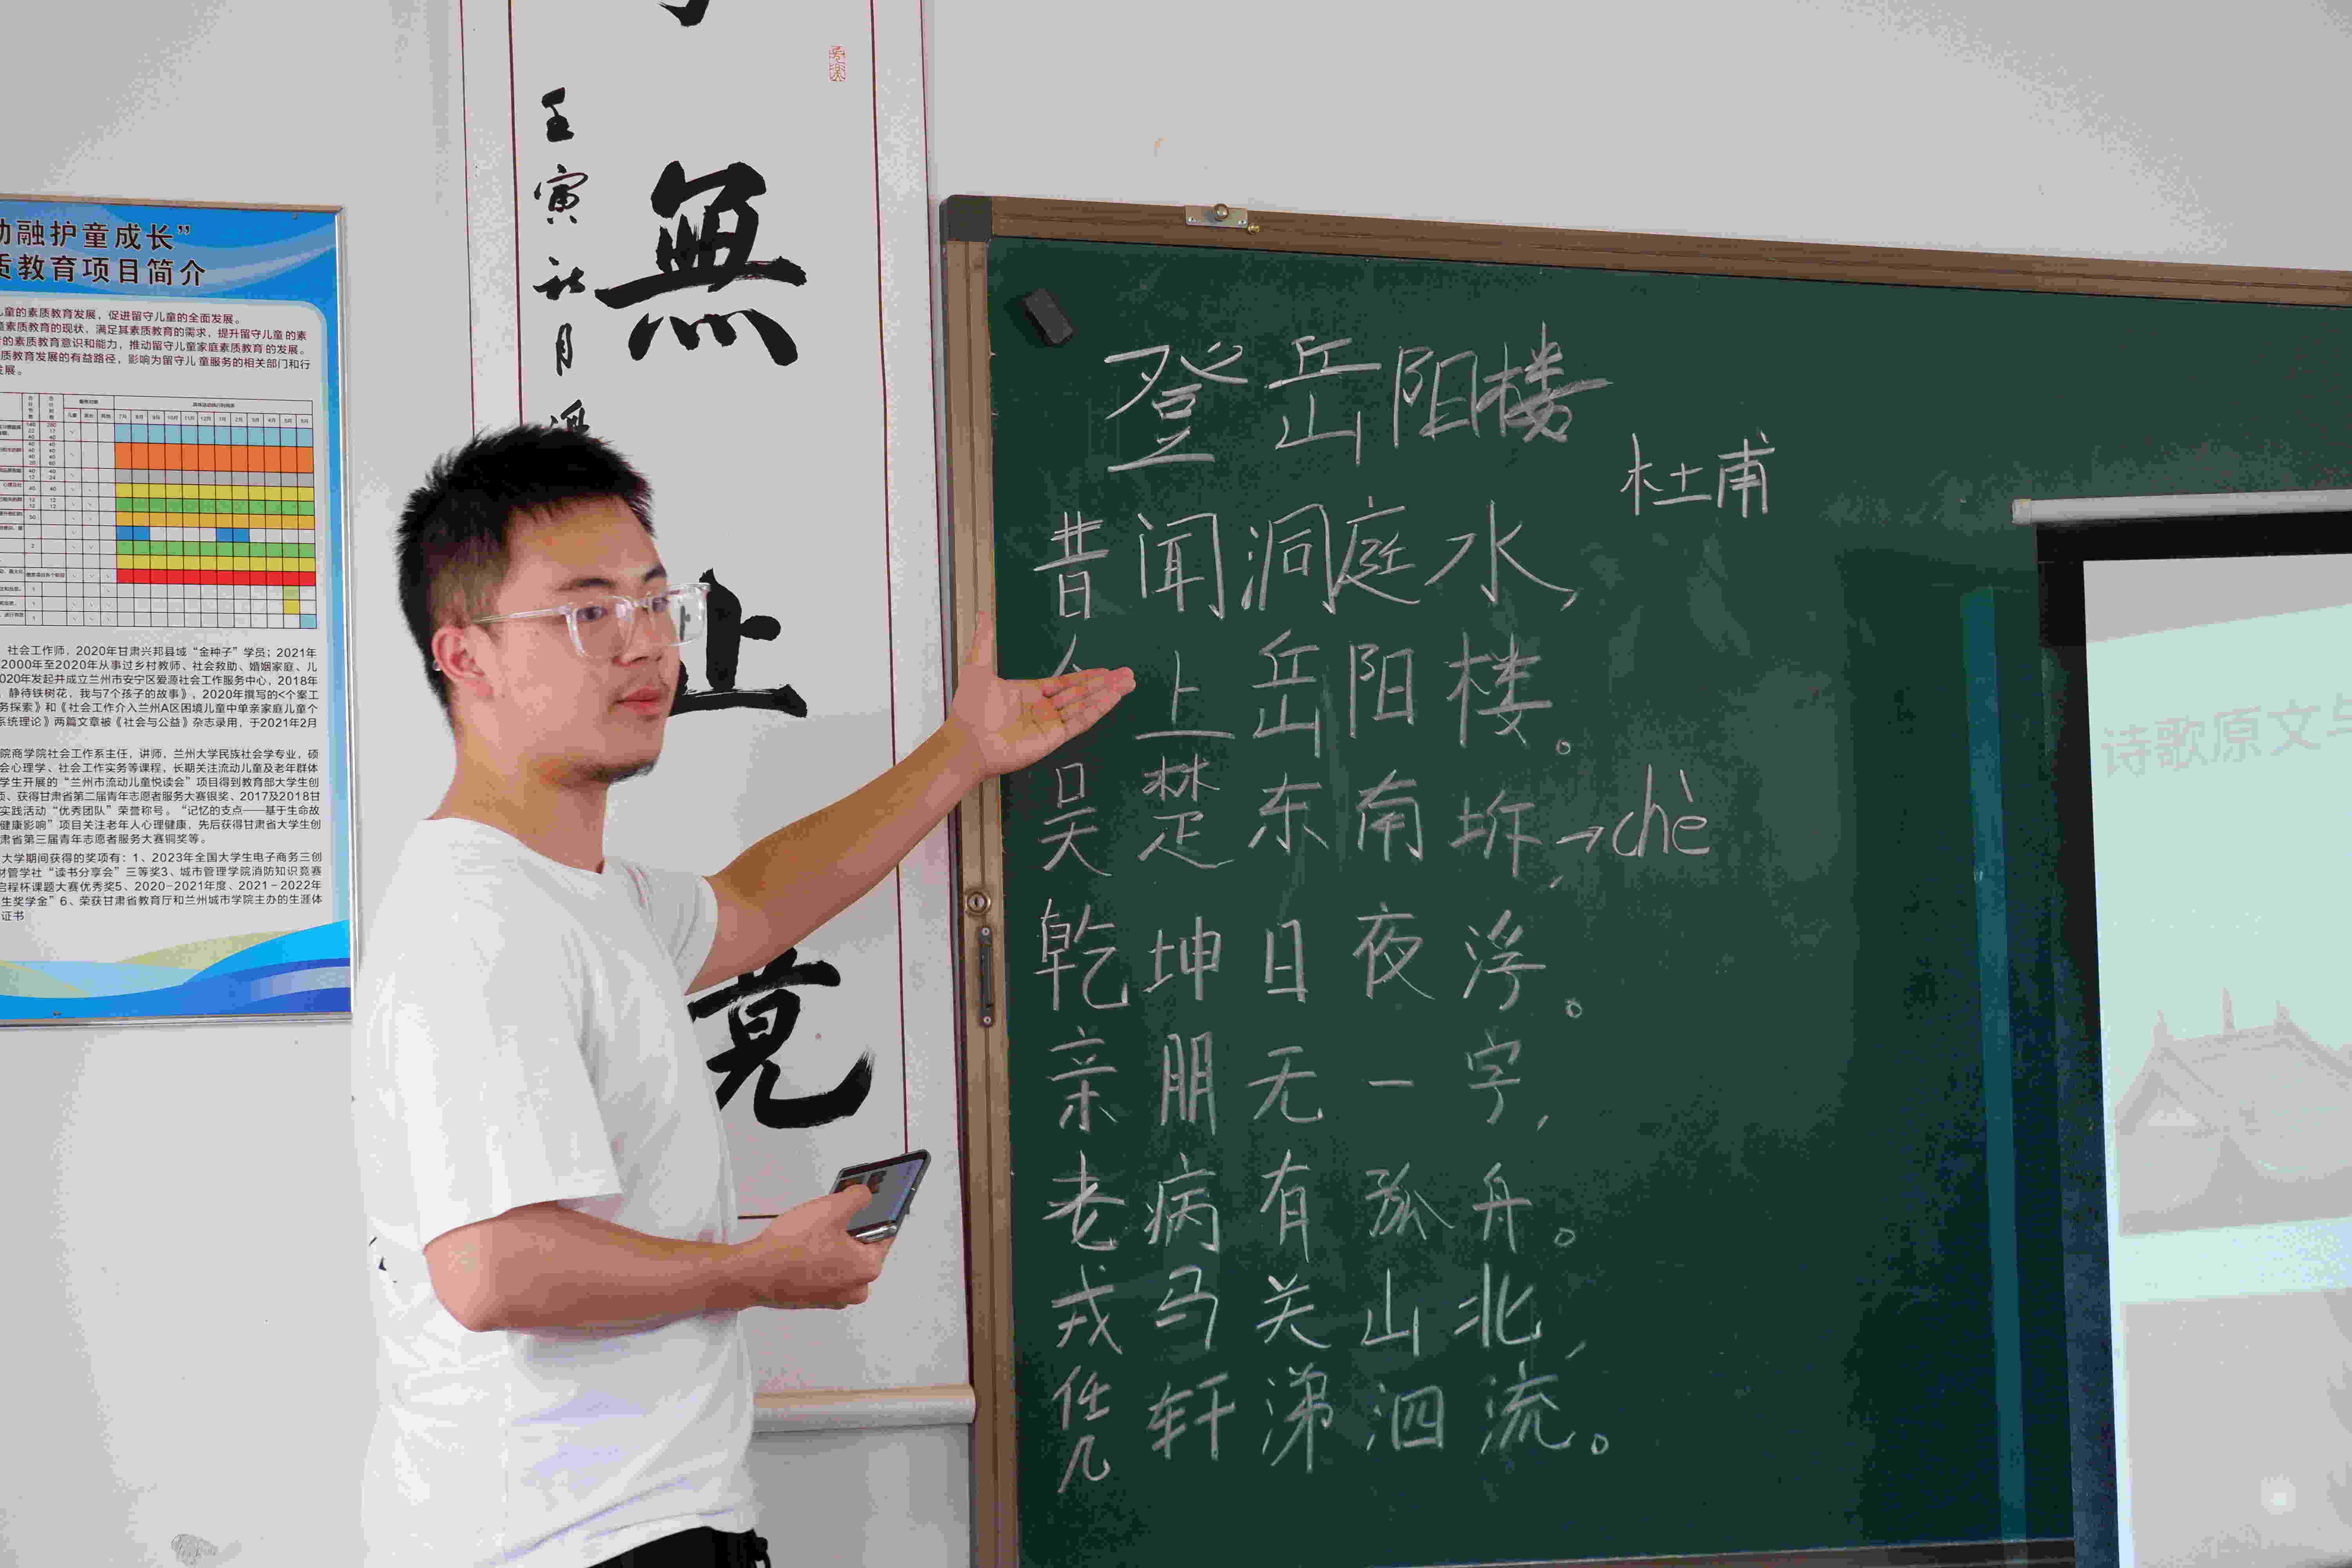 动融护童成长”
质教育项目简介
儿童的素质教育发展，促进留守儿童的全面发展。
童素质教育的现状，满足其素质教育的需求，提升留守儿童的素
的素质教育意识和能力，推动留守儿童家庭素质教育的发展。
质教育发展的有益路径，影响为留守儿童服务的相关部门和行
发展。
7月 8月 9月 10月 11月 12月 1月 2月 3月 4月 5月 6月
社会工作师，2020年甘肃兴邦县域“金种子”学员；2021年
2000年至2020年从事过乡村教师、社会救助、婚姻家庭、儿
020年发起并成立兰州市安宁区爱源社会工作服务中心，2018年
静待铁树花，我与7个孩子的故事》，2020年撰写的<个案工
务探索》和《社会工作介入兰州A区困境儿童中单亲家庭儿童个
系统理论》两篇文章被《社会与公益》杂志录用，于2021年2月
院商学院社会工作系主任，讲师，兰州大学民族社会学专业，硕
会心理学、社会工作实务等课程，长期关注流动儿童及老年群体
学生开展的“兰州市流动儿童悦读会”项目得到教育部大学生创
项、获得甘肃省第二届青年志愿者服务大赛银奖、2017及2018甘
实践活动“优秀团队”荣誉称号。“记忆的支点——基于生命故
健康影响”项目关注老年人心理健康，先后获得甘肃省大学生创
肃省第三届青年志愿者服务大赛铜奖等。
大学期间获得的奖项有：1、2023年全国大学生电子商务三创
财管学社“读书分享会”三等奖3、城市管理学院消防知识竞赛
启程杯课题大赛优秀奖5、2020-2021年度、2021-2022年
生奖学金”6、荣获甘肃省教育厅和兰州城市学院主办的生涯体
证书
無止竟
王寅
月
登岳阳楼
杜甫
昔闻洞庭水，
今上岳阳楼。
吴楚东南坼，→chè
乾坤日夜浮。
亲朋无一字，
老病有孤舟。
戎马关山北，
凭轩涕泗流。
诗歌原文与